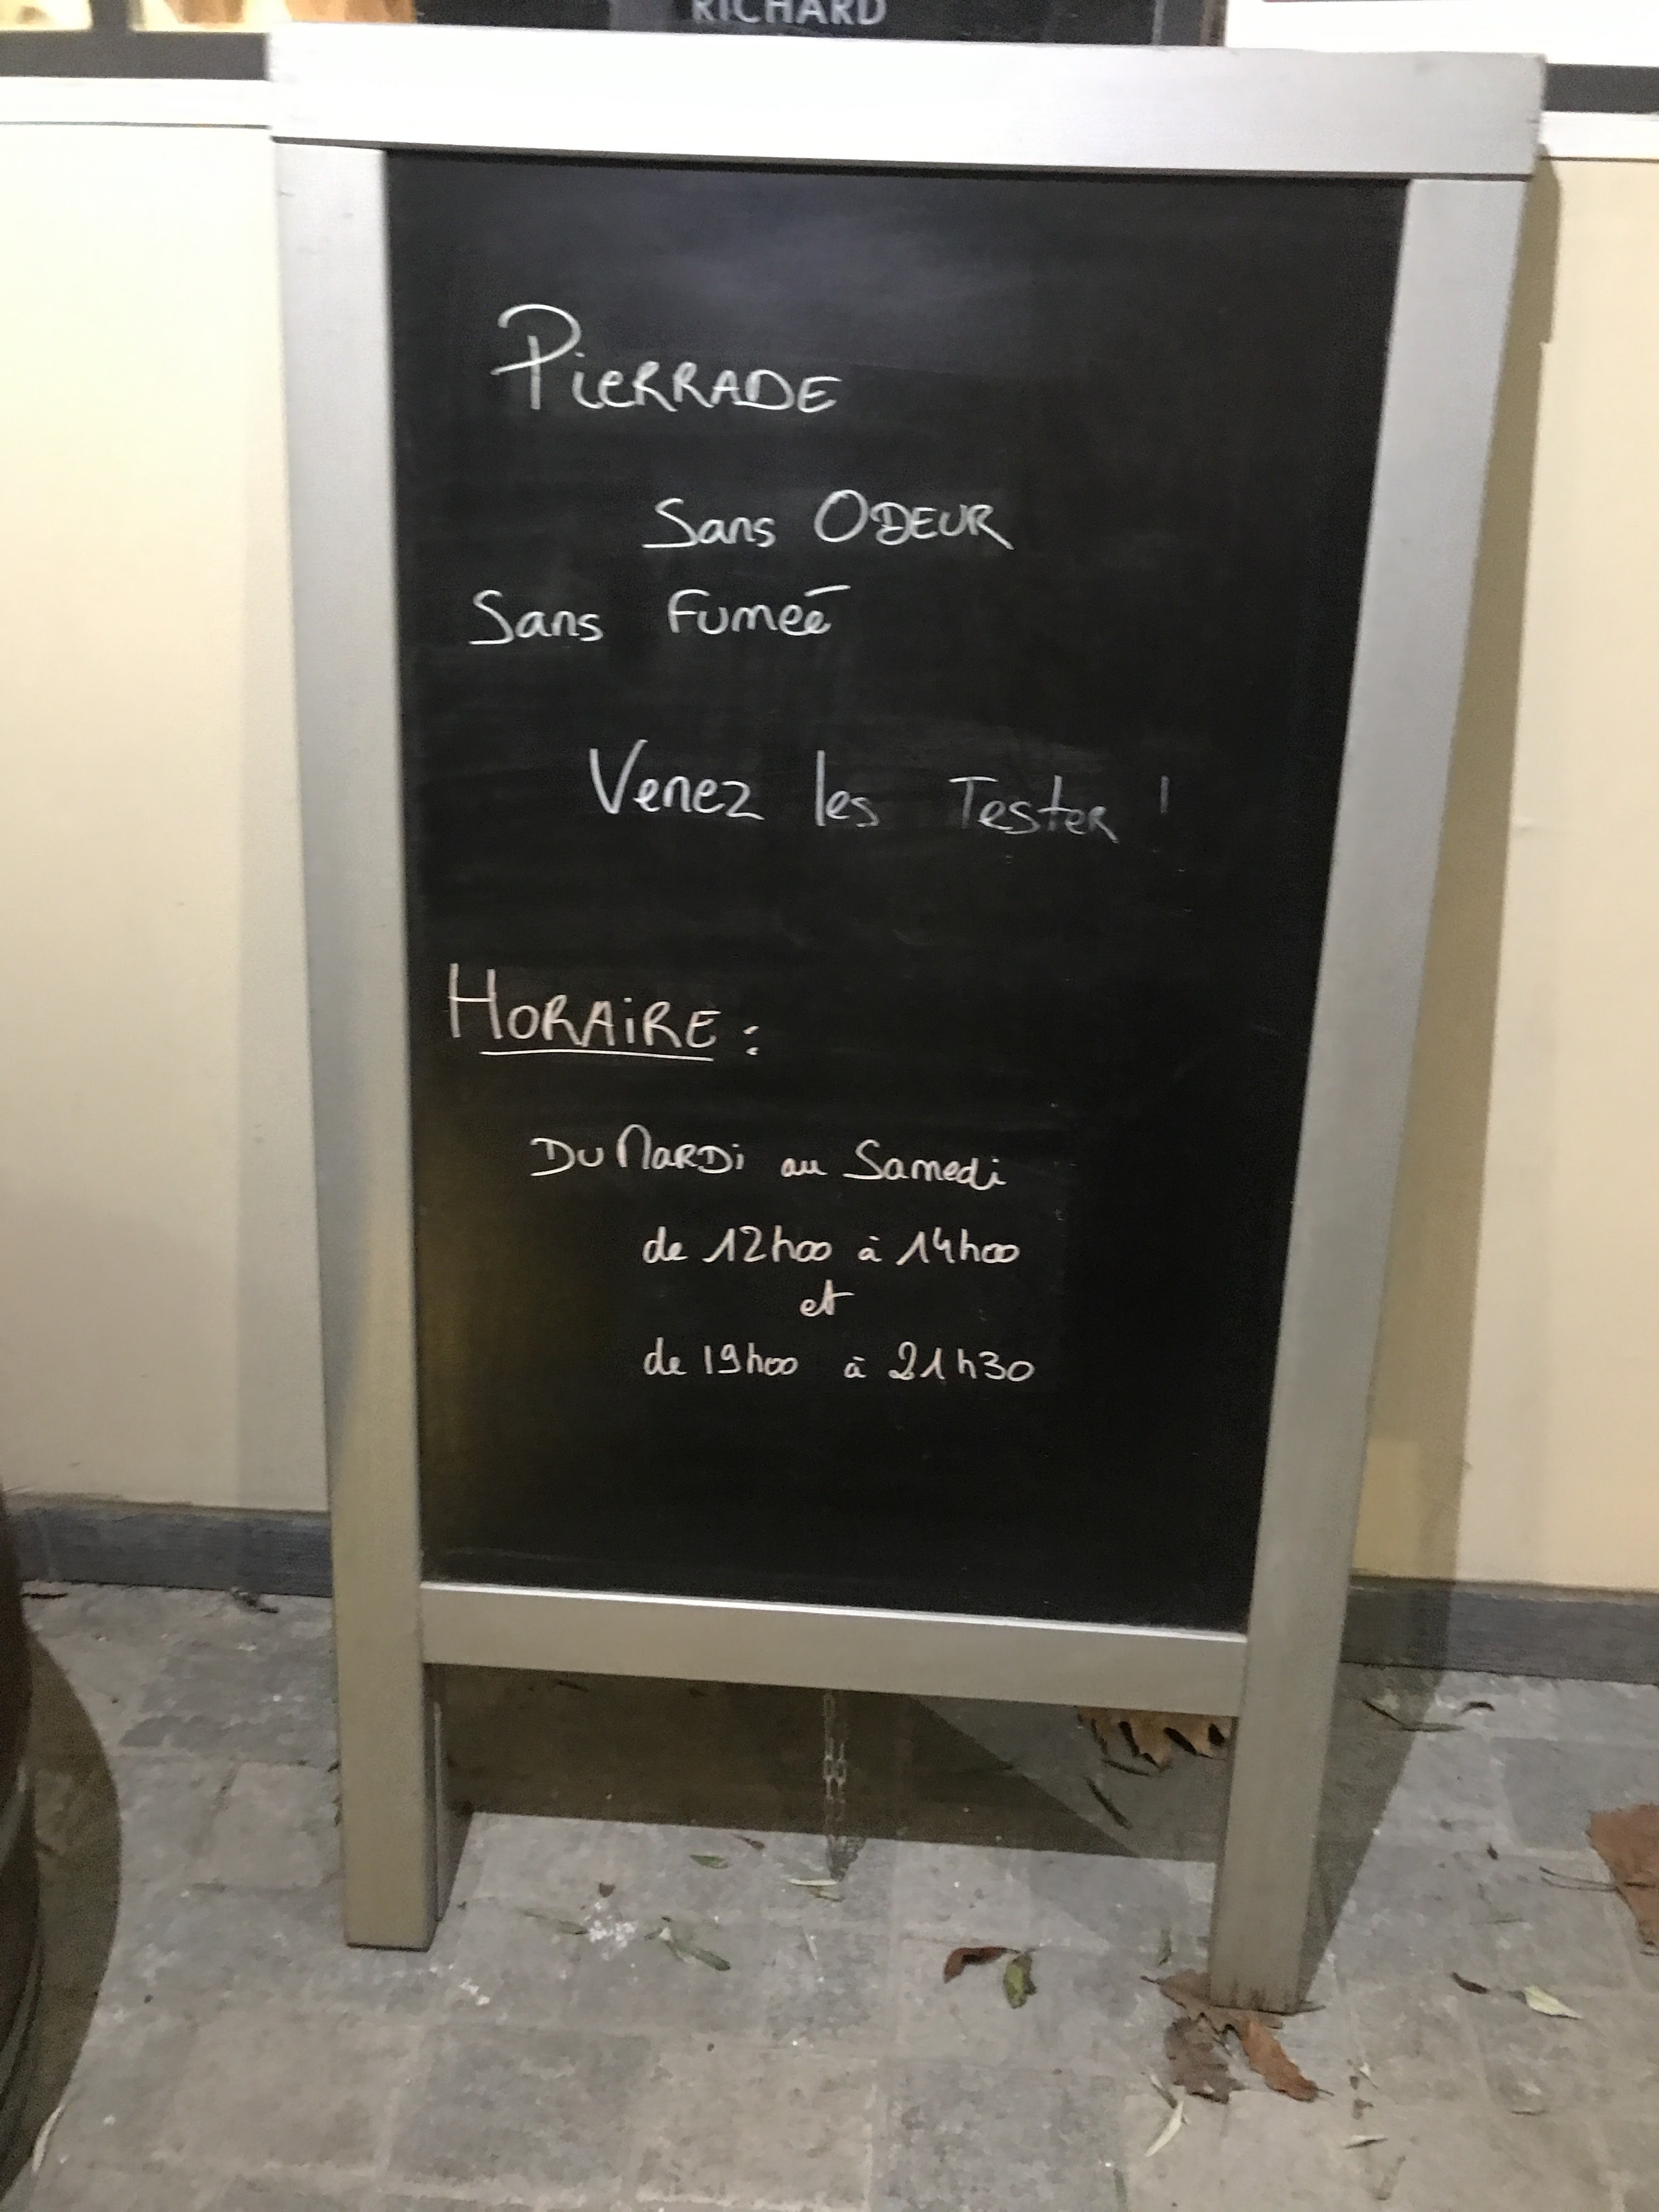 RICHARD
PieRRADE
Sans ODEUR
Sans Fumeé
Venez les Tester !
HORAiRE :
DU MaRDi au Samedi
de 12h00 à 14h00
et
de 19h00 à 21h30